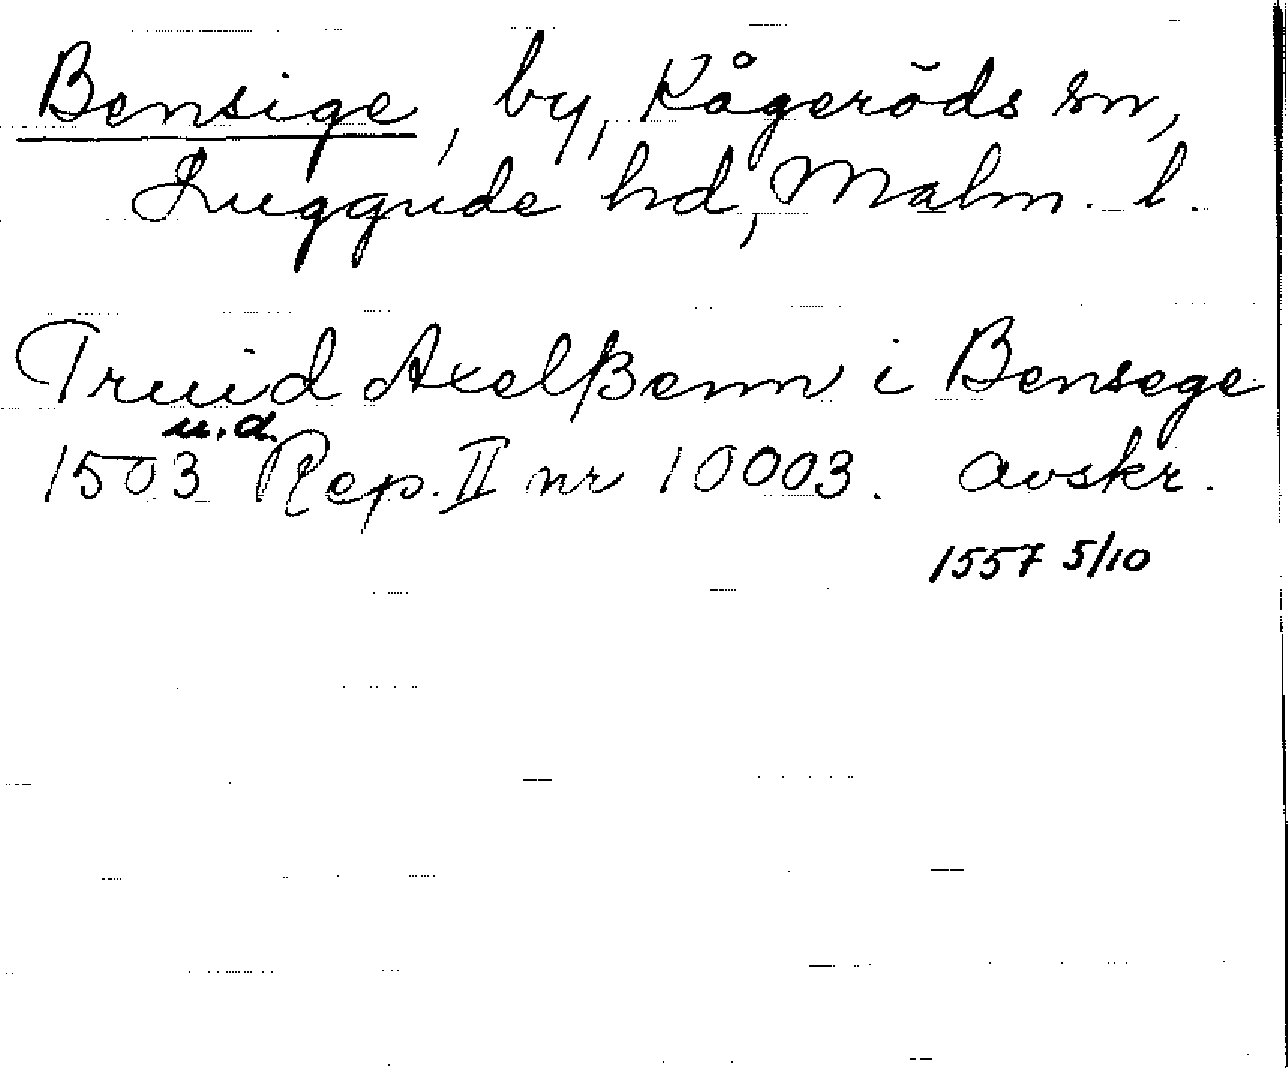 Bensige, by, Kågeröds sn,
Luggude hd, Malm. l.
Truid Axelßenn i Bensege
u.d.
1503 Rep. II nr 10003. avskr.
1557 5/10